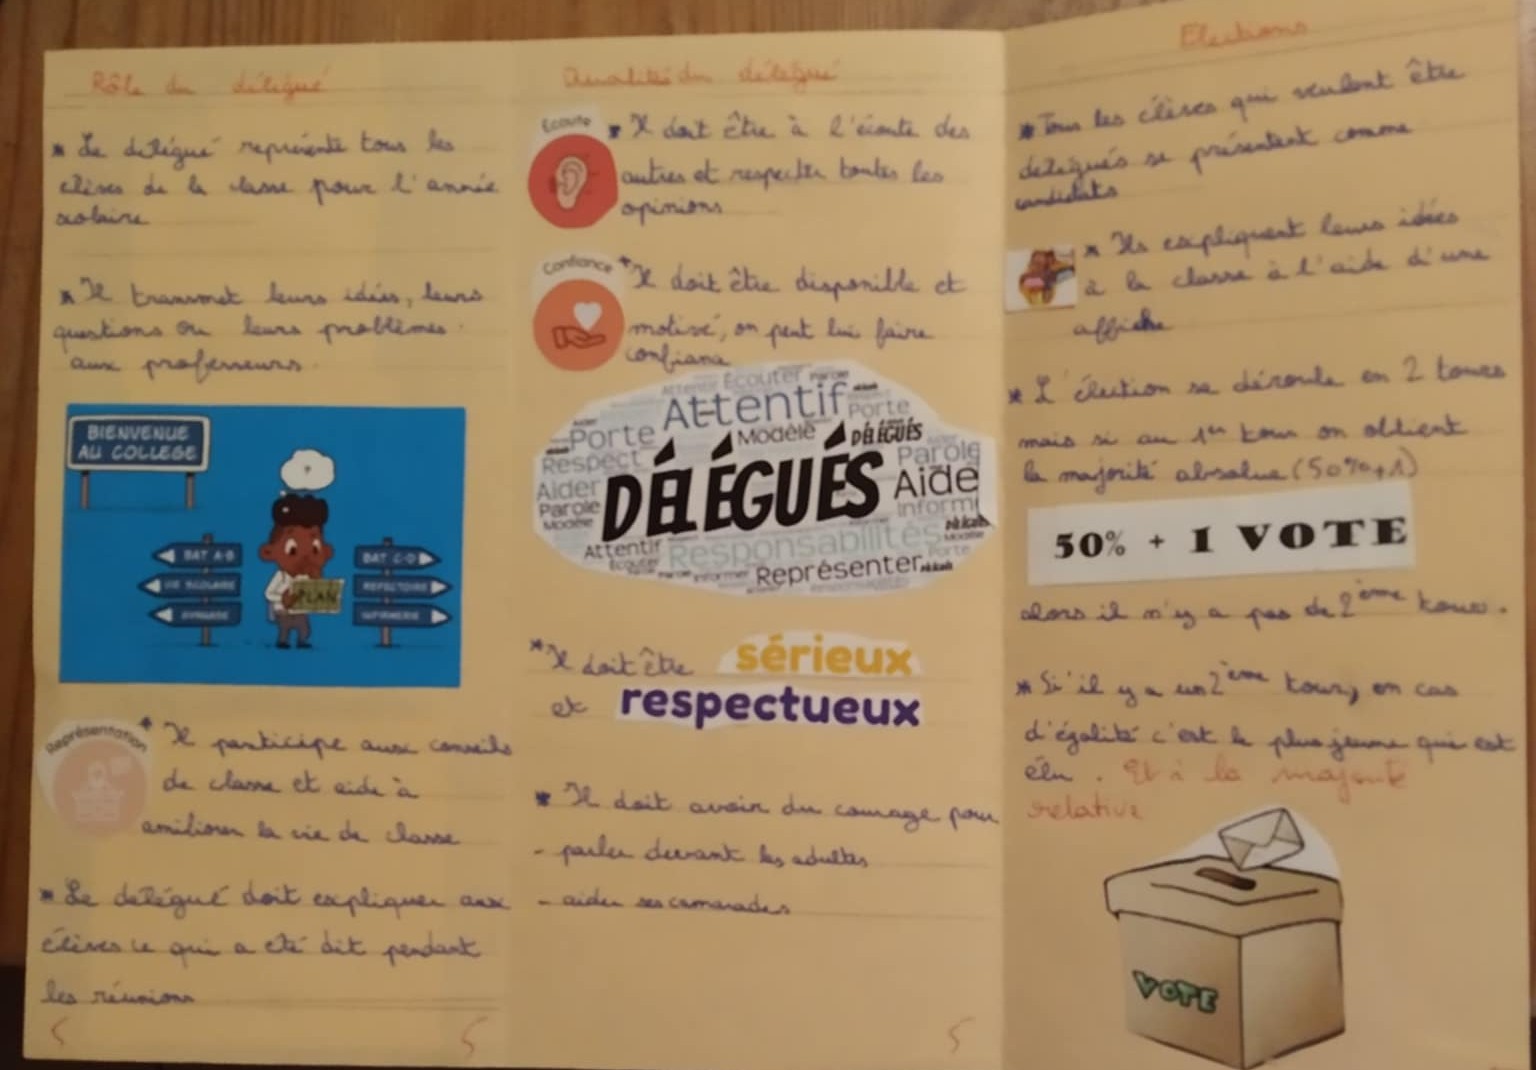 Rôle du délégué
* Le délégué représente tous les
élèves de la classe pour l'année
scolaire
* Il transmet leurs idées, leurs
questions ou leurs problèmes
aux professeurs.
BIENVENUE
AU COLLEGE
?
BAT A-B
VIE SCOLAIRE
BAT C-D
REFECTOIRE
INFIRMERIE
PLAN
Représentation
* Il participe aux conseils
de classe et aide à
améliorer la vie de classe
* Le délégué doit expliquer aux
élèves ce qui a été dit pendant
les réunions
Qualités du délégué
Ecoute
* Il doit être à l'écoute des
autres et respecter toutes les
opinions
Confiance
* Il doit être disponible et
motivé, on peut lui faire
confiance
Attentif Écouter Parole
Attentif Porte
Porte Modèle DÉLÉGUÉS
Respect Parole
Aider DÉLÉGUÉS Aide
Parole Informer
Modèle
Attentif Responsabilités Modèle
Écouter Porte
Informer Représenter
* Il doit être sérieux
et respectueux
* Il doit avoir du courage pour
- parler devant les adultes
- aider ses camarades
Elections
* Tous les élèves qui veulent être
délégués se présentent comme
candidats
* Ils expliquent leurs idées
à la classe à l'aide d'une
affiche
* L'élection se déroule en 2 tours
mais si au 1er tour on obtient
la majorité absolue (50%+1)
50% + 1 VOTE
alors il n'y a pas de 2ème tour.
* Si il y a un 2ème tour, en cas
d'égalité c'est le plus jeune qui est
élu. Et à la majorité
relative
VOTE